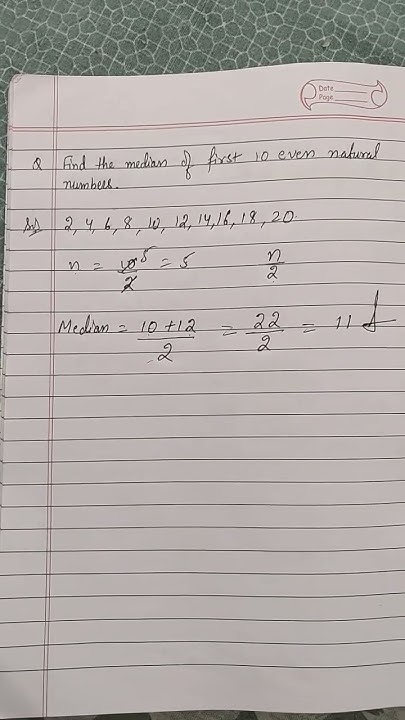 Date
Page
Q Find the median of first 10 even natural
numbers.
Sol 2, 4, 6, 8, 10, 12, 14, 16, 18, 20.
n = 10/2 5 = 5 n/2
Median = 10 + 12/2 = 22/2 = 11